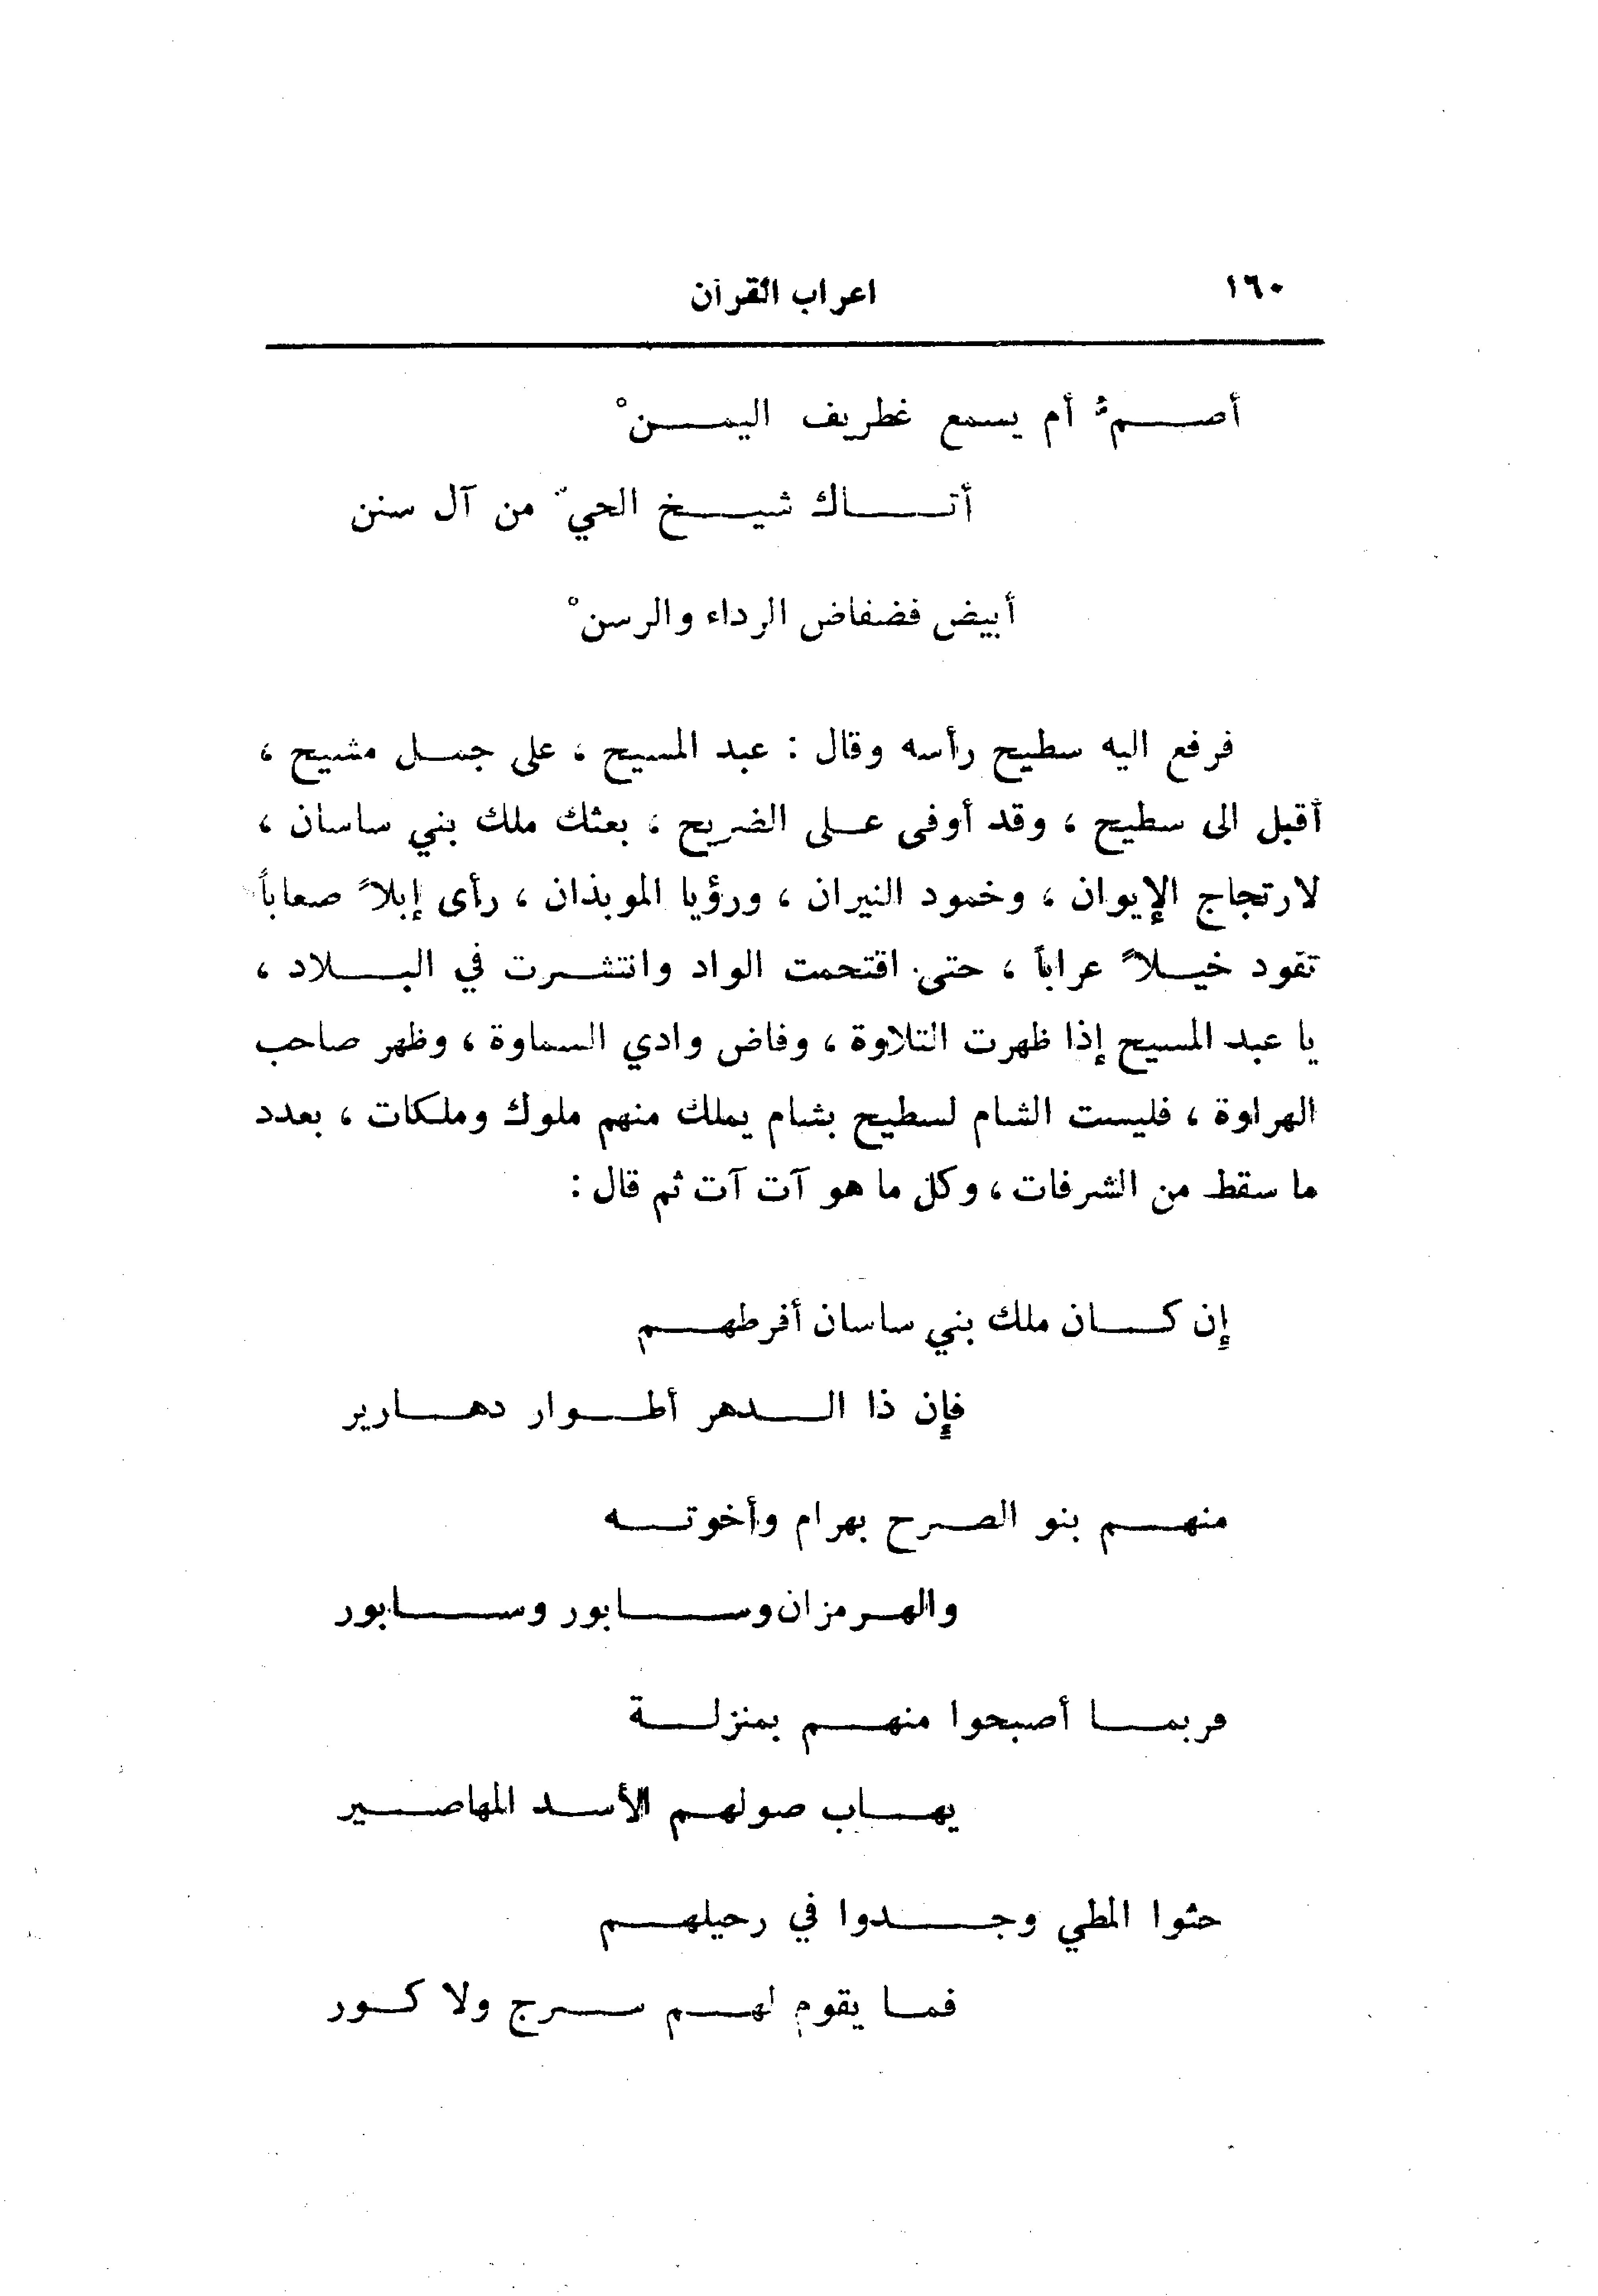 ١٦٠
اعراب القرآن
أصمّ أم يسمع غطريف اليمنْ
أتاك شيخ الحيّ من آل سنن
أبيض فضفاض الرداء والرسنْ
فرفع اليه سطيح رأسه وقال : عبد المسيح ، على جمل مشيح ،
أقبل الى سطيح ، وقد أوفى على الضريح ، بعثك ملك بني ساسان ،
لارتجاج الإيوان ، وخمود النيران ، ورؤيا الموبذان ، رأى إبلاً صعاباً
تقود خيلاً عراباً ، حتى اقتحمت الواد وانتشرت في البلاد ،
يا عبد المسيح إذا ظهرت التلاوة ، وفاض وادي السماوة ، وظهر صاحب
الهراوة ، فليست الشام لسطيح بشام يملك منهم ملوك وملكات ، بعدد
ما سقط من الشرفات ، وكل ما هو آت آت ثم قال :
إن كان ملك بني ساسان أفرطهم
فإن ذا الدهر أطوار دهارير
منهم بنو الصرح بهرام وأخوته
والهرمزان وسابور وسابور
فربما أصبحوا منهم بمنزلة
يهاب صولهم الأسد المهاصير
حثوا المطي وجدوا في رحيلهم
فما يقوم لهم سرج ولا كور